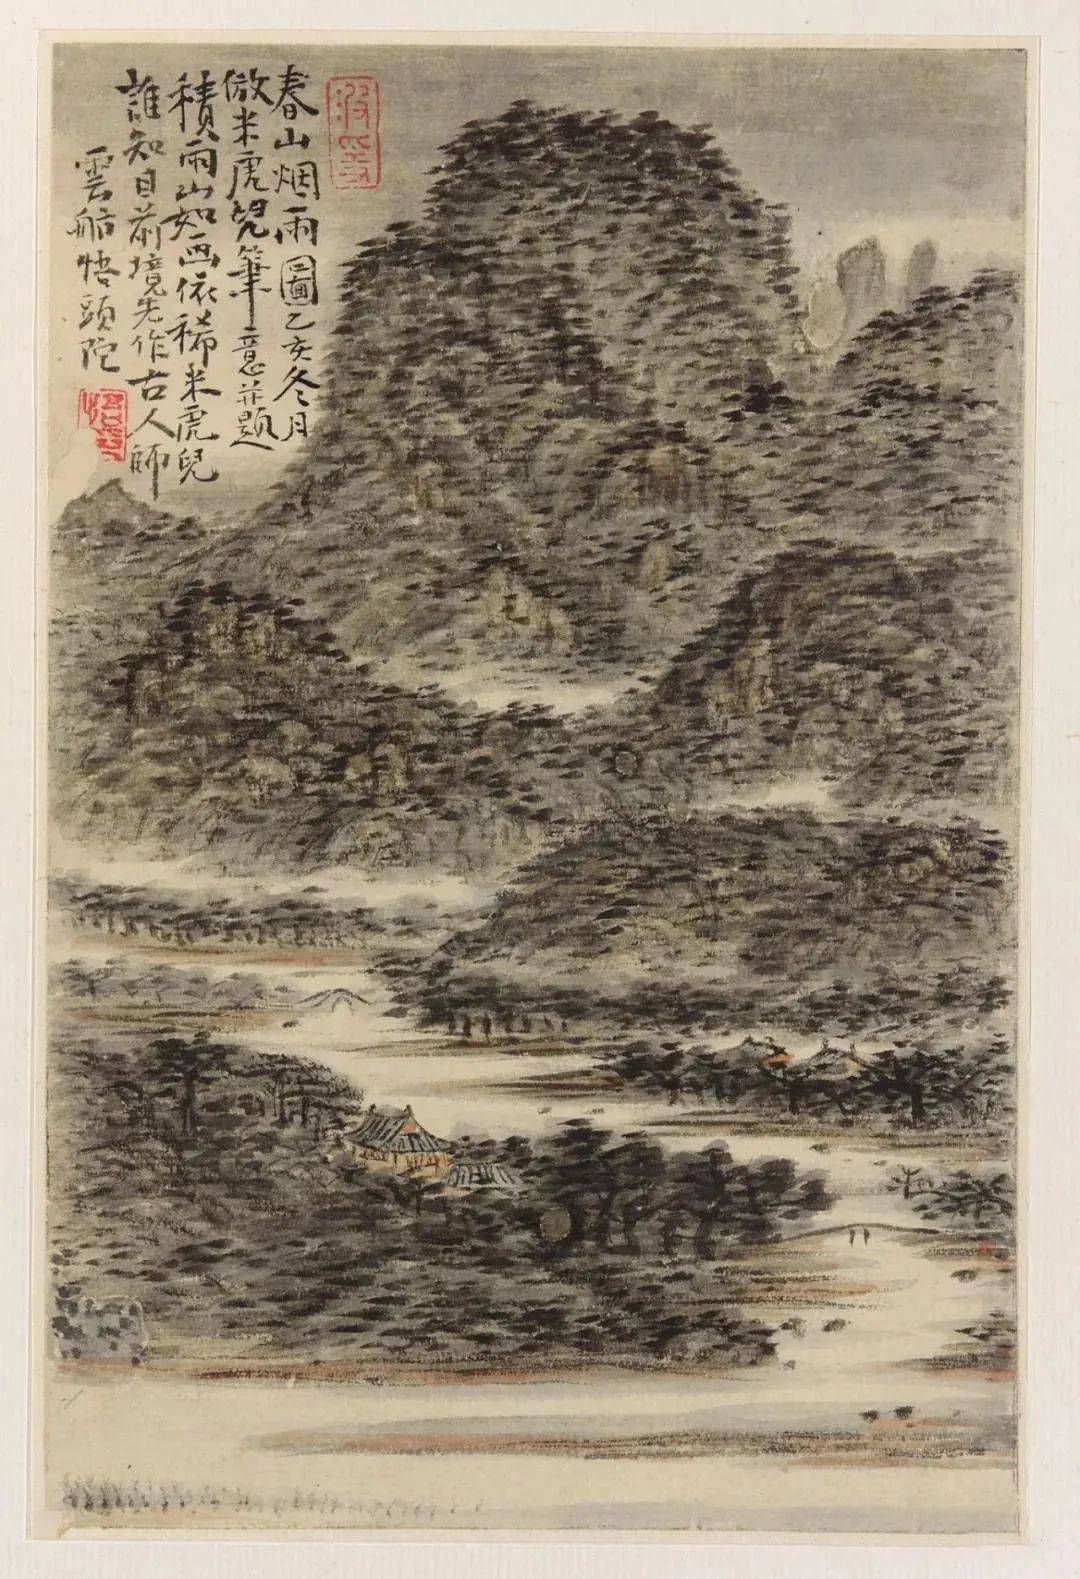 春山烟雨圖乙亥冬月
倣米虎兒筆意并題
積雨山如画依稀米虎兒
誰知目前境先作古人師
雲船悟頭陀